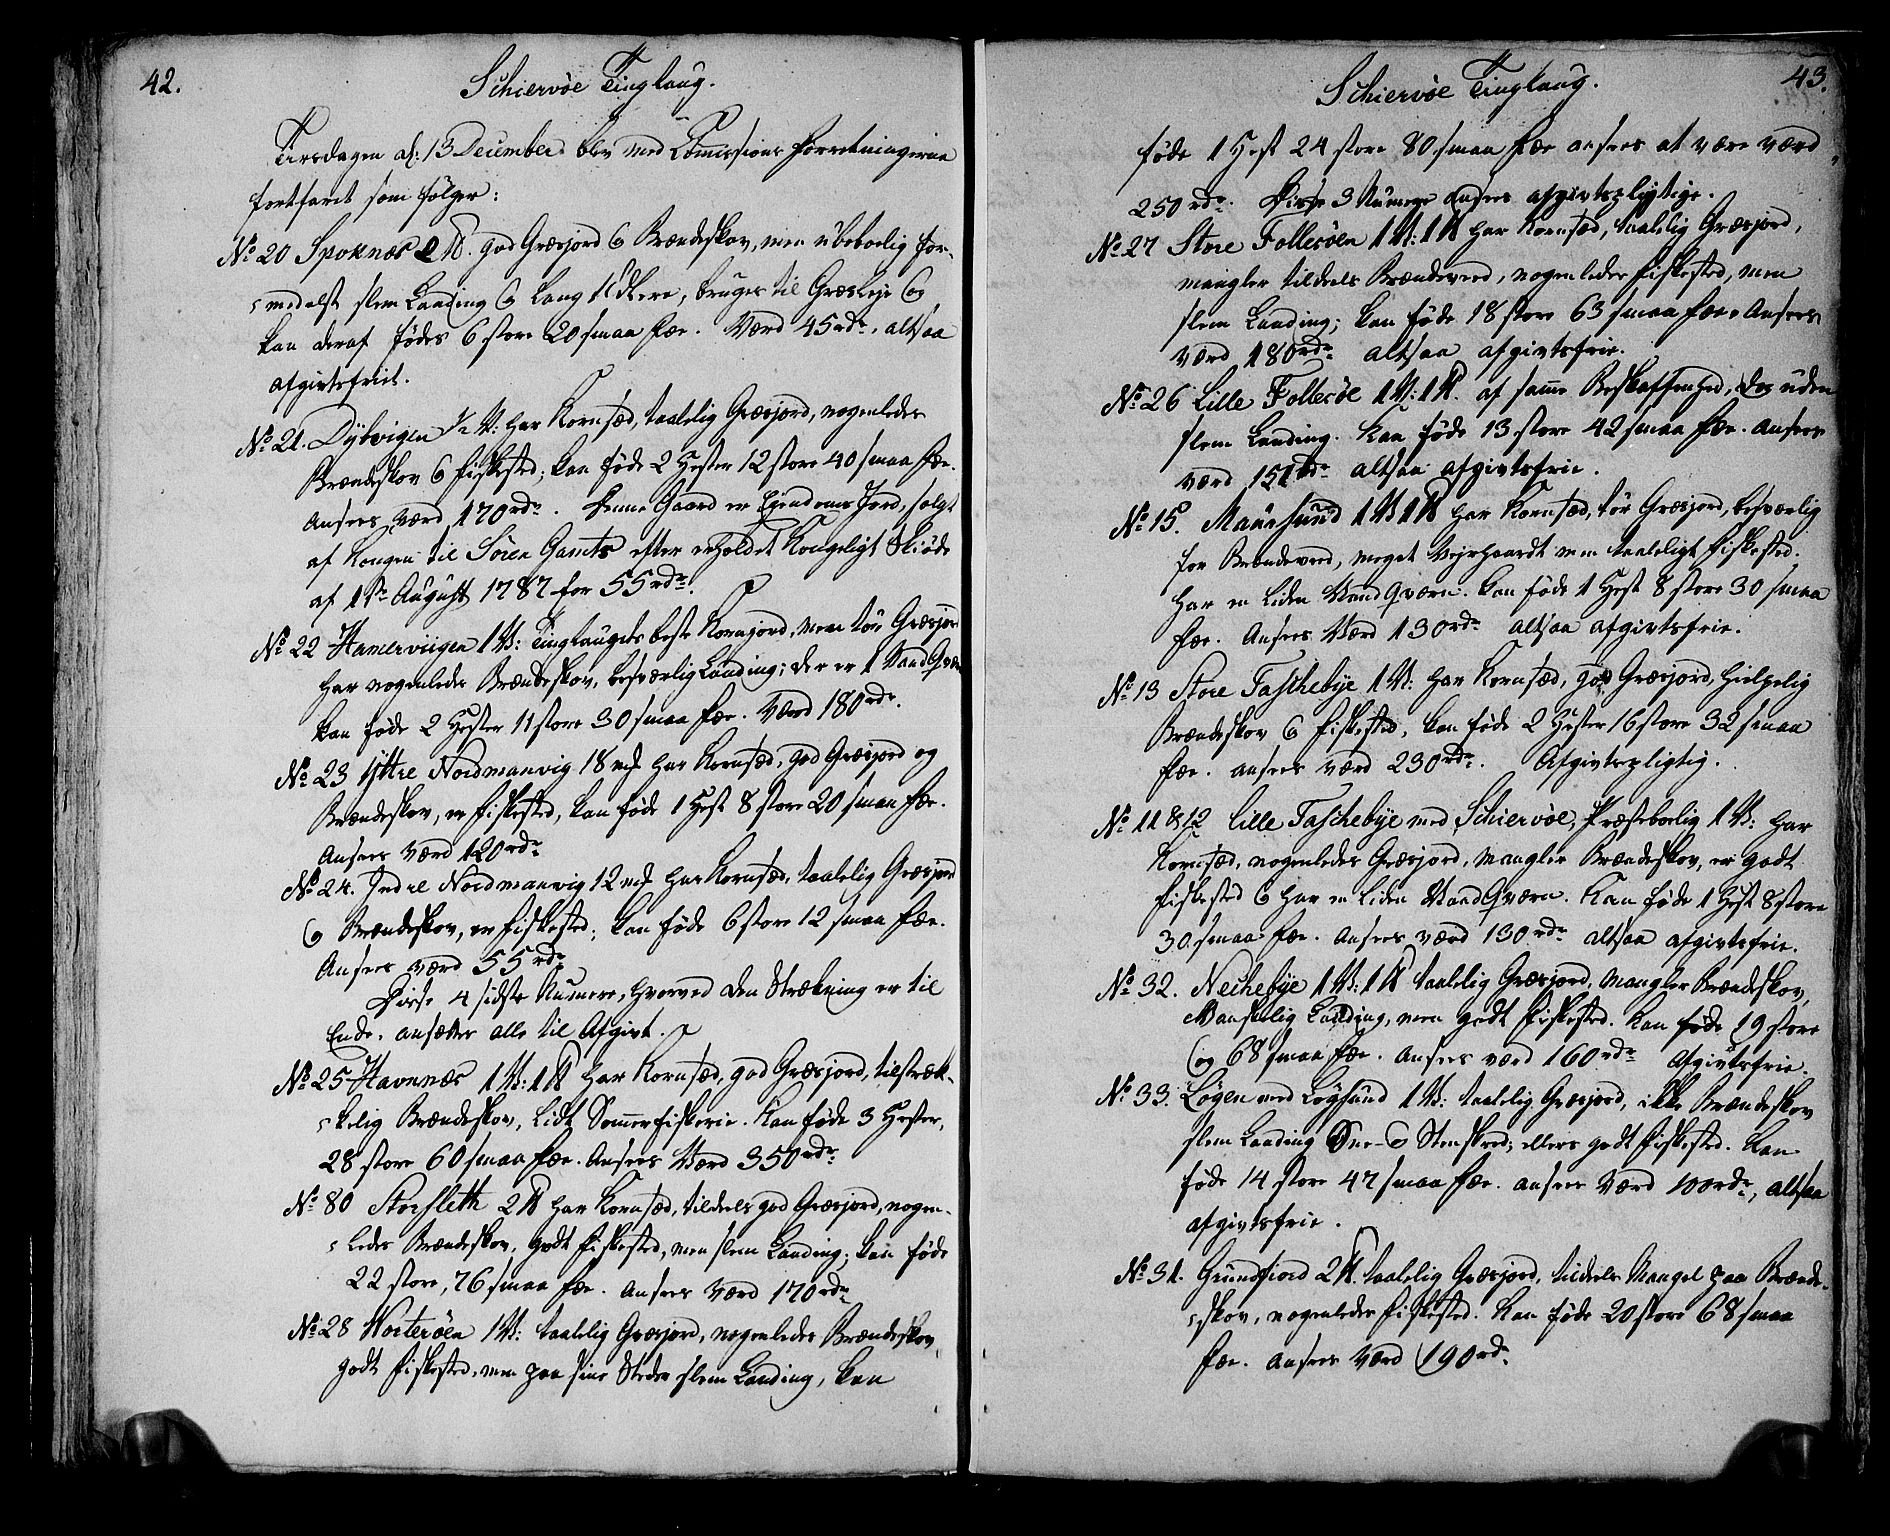 42.
Schiervöe Tinglaug.
Tirsdagen d: 13 December blev med Commissions Forretningerne
fortfaret som følger:
No 20 Spoknæs 2 ℔. god Græsjord & Brændeskov, men ubeboelig for-
medelst slem Landing & lang  bruges til Græsleje &
kan deraf fødes 6 store 20 smaa Fæe. Værd 45 rdr. altsaa
afgivtsfriet.
No 21. Dybvigen ½ V: har Kornsæd, taalelig Græsjord, nogenledes
Brændeskov & Fiskested; kan føde 2 Hester 12 store 40 smaa Fæe.
Ansees Værd 170 rdr. Denne Gaard er Ejendoms Jord, solgt
af Kongen til Sören Gamts efter erholdet Kongeligt Skiøde
af 1ste August 1787 for 55 rdr.
No 22 Hamerviigen 1 V: Tinglaugets beste Kornjord, men tør Græsjord
har nogenledes Brændeskov, besværlig Landing; der er 1 Vand Qværn
kan føde 2 Hester 11 store 30 smaa Fæe. Værd 180 rdr.
No 23 Ytre Nordmanvig 18 mk har Kornsæd, god Græsjord og
Brændeskov, er Fiskested, kan føde 1 Hest 8 store 20 smaa Fæe.
Ansees Værd 120 rdr
No 24. Indre Nordmanvig 12 mk har Kornsæd, taalelig Græsjord
& Brændeskov, er Fiskested; kan føde 6 store 12 smaa Fæe.
Ansees Værd 55 rdr
Disse 4 sidste Numere, hvorved den Strækning er til
Ende, ansættes alle til Afgivt.
No 25 Havnnæs 1 V: 1 ℔ har Kornsæd, god Græsjord, tilstræk-
kelig Brændeskov, lidt Sommerfiskerie. Kan føde 3 Hester,
28 store 60 smaa Fæe. Ansees Værd 350 rdr
No 80 Storsleth 2 ℔ har Kornsæd, tildeels god Græsjord, nogen-
ledes Brændeskov, godt Fiskested, men slem Landing; kan føde
22 store, 76 smaa Fæe. Ansees Værd 170 rdr
No 28 Worterøen 1 V: taalelig Græsjord, nogenledes Brændeskov
godt Fiskested, men paa sine Steder slem Landing, kan
43.
Schiervöe Tinglaug.
føde 1 Hest 24 store 80 smaa Fæe ansees at være værd
250 rdr. Disse 3 Numere ansees afgivtspligtige.
No 27 Store Follesöen 1 V: 1 ℔ har Kornsæd, taalelig Græsjord,
mangler tildeels Brændeveed, nogenledes Fiskested, men
slem Landing; kan føde 18 store 63 smaa Fæe. Ansees
værd 180 rdr altsaa afgivtsfrie.
No 26 Lille Follesöe 1 V: 1 ℔. af samme Beskaffenhed, dog uden
slem Landing. Kan føde 13 store 42 smaa Fæe. Ansees
værd 151 rdr altsaa afgivtsfrie.
No 15. Maursund 1 V 1 ℔ har Kornsæd, tør Græsjord, besværlig
for Brændeveed, meget Vejrhaardt men taaleligt Fiskested.
Har en liden Vand Qværn. kan føde 1 Hest 8 store 30 smaa
Fæe. Ansees Værd 130 rdr altsaa afgivtsfrie.
No 13 Store Taschebye 1 V: har Kornsæd, god Græsjord, hielpelig
Brændeskov & Fiskested, kan føde 2 Hester 16 store 32 smaa
Fæe. ansees værd 230 rdr. Afgivtspligtig.
No 11 & 12 Lille Taschebye med Schiervöe, Præstebolig 1 V: har
Kornsæd, nogenledes Græsjord, mangler Brændeskov, er godt
Fiskested & har en liden Vand Qværn. Kan føde 1 Hest 8 store
30 smaa Fæe. Ansees værd 130 rdr altsaa afgivtsfrie.
No 32. Neichebye 1 V: 1 ℔ taalelig Græsjord, mangler Brændeskov,
Vanskelig Landing, men godt Fiskested. Kan føde 19 store
og 68 smaa Fæe. Ansees værd 160 rdr afgivtsfrie.
No 33. Løgen med Løgsund 1 V: taalelig Græsjord, ikke Brændeskov
slem Landing Snee- & Steenskred; ellers godt Fiskested. Kan
føde 14 store 47 smaa Fæe. ansees Værd 100 rdr, altsaa
afgivtsfrie.
No 31. Grundfiord 2 ℔. taalelig Græsjord, tildeels Mangel paa Brænde-
skov, nogenledes Fiskested. Kan føde 20 store 68 smaa
Fæe. ansees Værd 190 rdr.